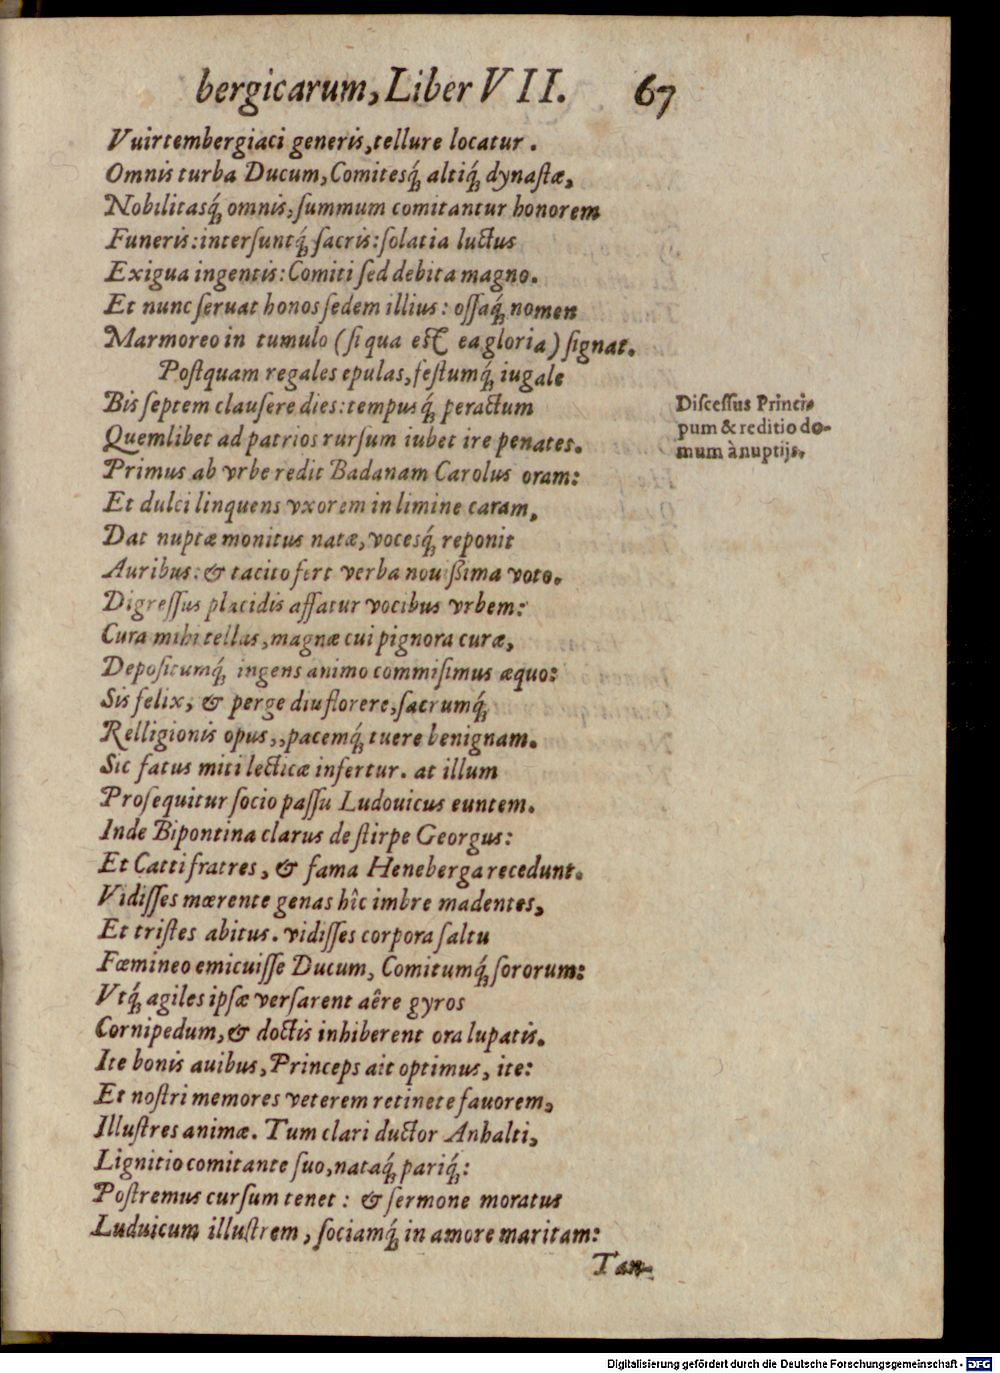 bergicarum, Liber VII. 67
Vuirtembergiaci generis, tellure locatur.
Omnis turba Ducum, Comitesq́; altiq́; dynastæ,
Nobilitasq́; omnis, ſummum comitantur honorem
Funeris: interſuntq́; ſacris: ſolatia luctus
Exigua ingentis: Comiti ſed debita magno.
Et nunc ſeruat honos ſedem illius: oſſaq́; nomen
Marmoreo in tumulo (ſi qua est ea gloria) ſignat.
Poſtquam regales epulas, feſtumq́; iugale
Bis ſeptem clauſere dies: tempusq́; peractum
Quemlibet ad patrios rurſum iubet ire penates.
Diſceſſus Princi-
pum & reditio do-
mum à nuptijs.
Primus ab vrbe redit Badanam Carolus oram:
Et dulci linquens vxorem in limine caram,
Dat nuptæ monitus natæ, vocesq́; reponit
Auribus: & tacito fert verba nouißima voto.
Digreſſus placidis affatur vocibus vrbem:
Cura mihi tellas, magnæ cui pignora curæ,
Depoſitumq́; ingens animo commiſimus æquo:
Sis felix, & perge diu florere, ſacrumq́;
Relligionis opus,, pacemq́; tuere benignam.
Sic fatus miti lecticæ infertur. at illum
Proſequitur ſocio paſſu Ludouicus euntem.
Inde Bipontina clarus de ſtirpe Georgus:
Et Catti fratres, & fama Heneberga recedunt.
Vidiſſes mœrente genas hîc imbre madentes,
Et triſtes abitus. vidiſſes corpora ſaltu
Fœmineo emicuiſſe Ducum, Comitumq́; ſororum:
Vtq́; agiles ipſæ verſarent aêre gyros
Cornipedum, & doctis inhiberent ora lupatis.
Ite bonis auibus, Princeps ait optimus, ite:
Et noſtri memores veterem retinete fauorem,
Illuſtres animæ. Tum clari ductor Anhalti,
Lignitio comitante ſuo, nataq́; pariq́;:
Poſtremus curſum tenet: & ſermone moratus
Luduicum illuſtrem, ſociamq́; in amore maritam:
Tan-
Digitalisierung gefördert durch die Deutsche Forschungsgemeinschaft - DFG